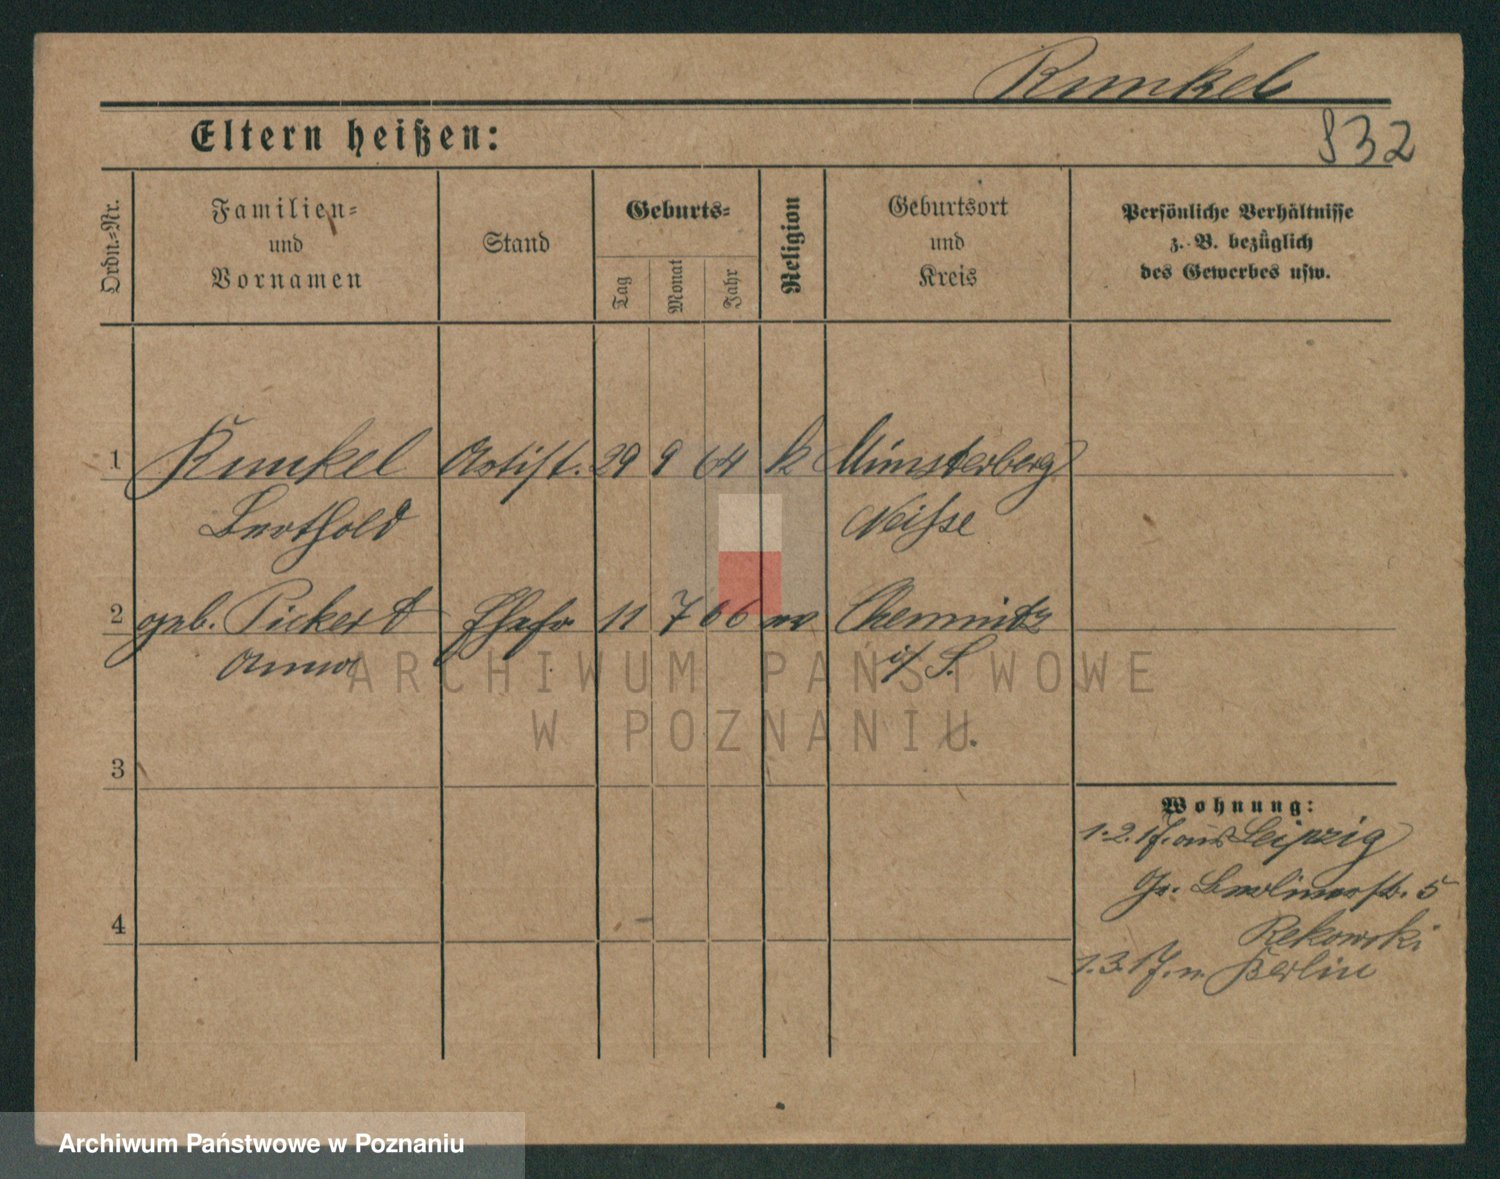 Kunkel
832
Eltern heißen:
Ordn.-Nr.
Familien-
und
Vornamen
Stand
Geburts-
Tag
Monat
Jahr
Religion
Geburtsort
und
Kreis
Persönliche Verhältnisse
z. B. bezüglich
des Gewerbes usw.
1 Kunkel Artist. 29 9 64 k Münsterberg
Berthold Neisse
2 geb. Pickert Ehefr 11 7 66 ev Chemnitz
Anna i/S.
ARCHIWUM PAŃSTWOWE
W POZNANIU
3
Wohnung:
1.2.17. aus Leipzig
Gr. Berlinerstr. 5
4
Rekowski
1.3.17. n. Berlin
Archiwum Państwowe w Poznaniu